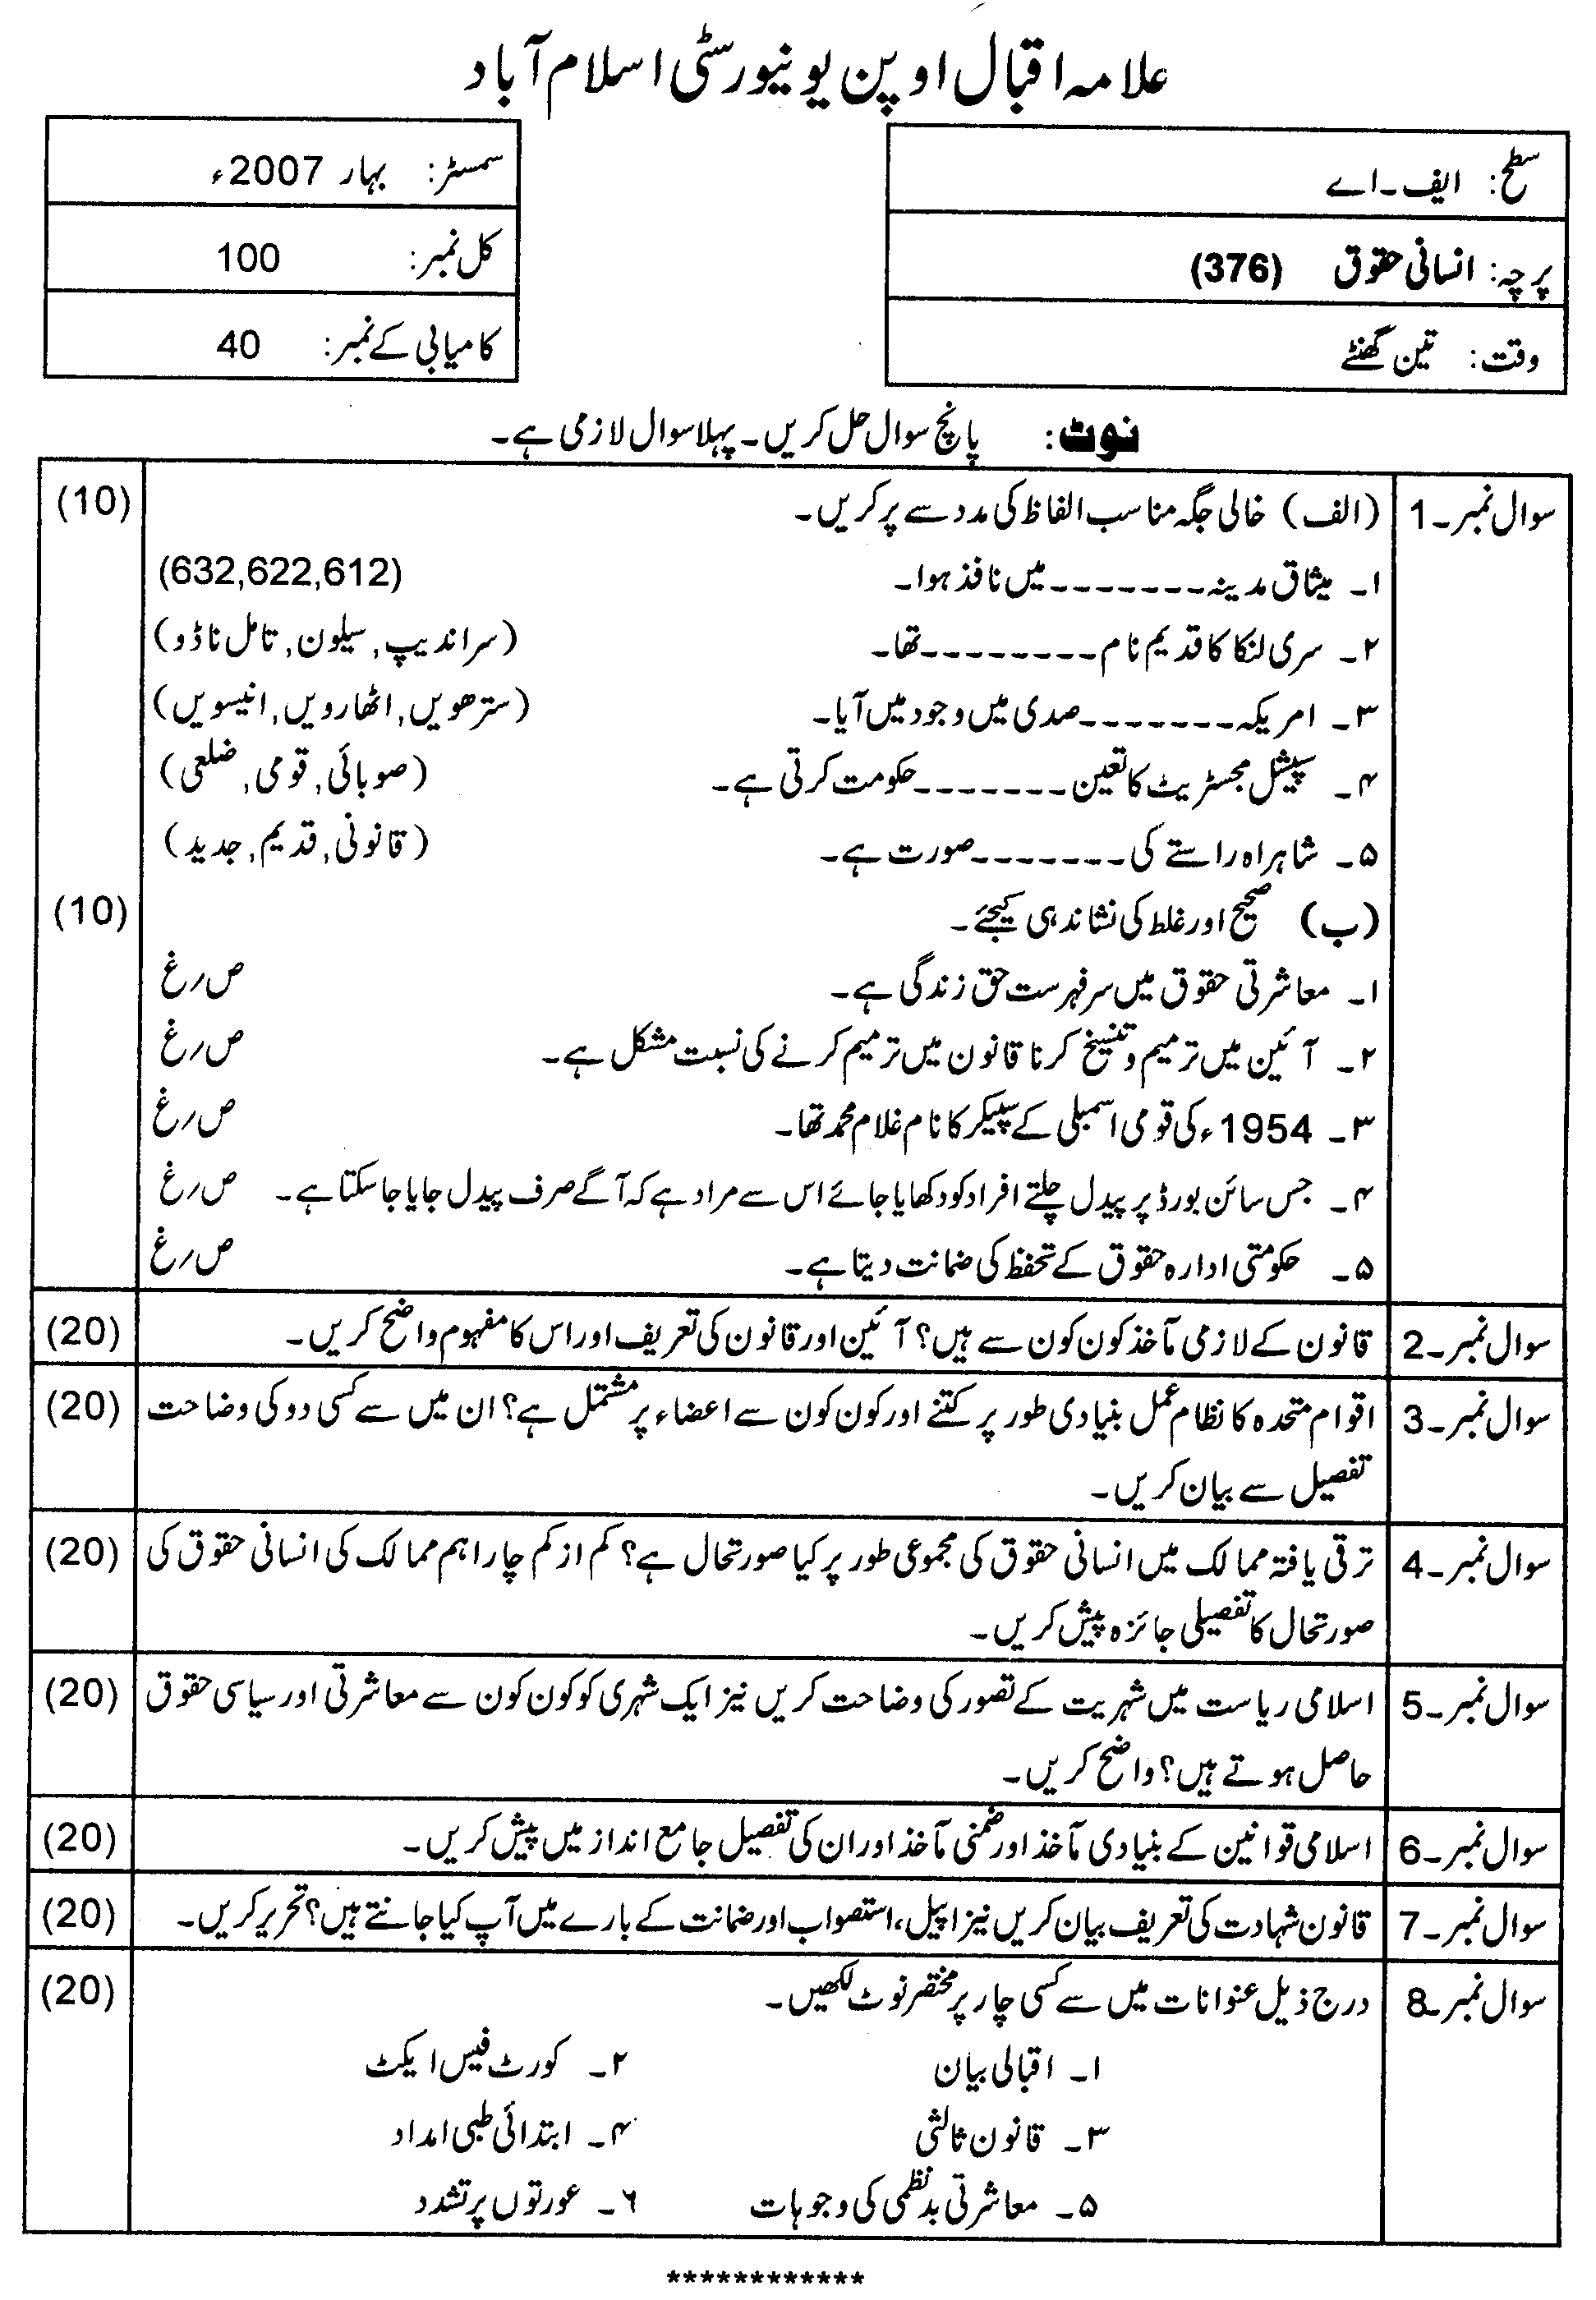 علامہ اقبال اوپن یونیورسٹی اسلام آباد
سطح: ایف۔اے
سمسٹر: بہار 2007ء
پرچہ: انسانی حقوق (376)
کل نمبر: 100
وقت: تین گھنٹے
کامیابی کے نمبر: 40
نوٹ: پانچ سوال حل کریں۔ پہلا سوال لازمی ہے۔
سوال نمبر۔1 (الف) خالی جگہ مناسب الفاظ کی مدد سے پر کریں۔ (10)
۱۔ میثاق مدینہ ------- میں نافذ ہوا۔ (632,622,612)
۲۔ سری لنکا کا قدیم نام -------- تھا۔ (سراندیپ, سیلون, تامل ناڈو)
۳۔ امریکہ ------- صدی میں وجود میں آیا۔ (سترھویں, اٹھارویں, انیسویں)
۴۔ سپیشل مجسٹریٹ کا تعین ------- حکومت کرتی ہے۔ (صوبائی, قومی, ضلعی)
۵۔ شاہراہ راستے کی ------- صورت ہے۔ (قانونی, قدیم, جدید)
(ب) صحیح اور غلط کی نشاندہی کیجئے۔ (10)
۱۔ معاشرتی حقوق میں سرفہرست حق زندگی ہے۔ ص/غ
۲۔ آئین میں ترمیم و تنسیخ کرنا قانون میں ترمیم کرنے کی نسبت مشکل ہے۔ ص/غ
۳۔ 1954ء کی قومی اسمبلی کے سپیکر کا نام غلام محمد تھا۔ ص/غ
۴۔ جس سائن بورڈ پر پیدل چلتے افراد کو دکھایا جائے اس سے مراد ہے کہ آگے صرف پیدل جایا جا سکتا ہے۔ ص/غ
۵۔ حکومتی ادارہ حقوق کے تحفظ کی ضمانت دیتا ہے۔ ص/غ
سوال نمبر۔2 قانون کے لازمی مآخذ کون کون سے ہیں؟ آئین اور قانون کی تعریف اور اس کا مفہوم واضح کریں۔ (20)
سوال نمبر۔3 اقوام متحدہ کا نظام عمل بنیادی طور پر کتنے اور کون کون سے اعضاء پر مشتمل ہے؟ ان میں سے کسی دو کی وضاحت (20)
تفصیل سے بیان کریں۔
سوال نمبر۔4 ترقی یافتہ ممالک میں انسانی حقوق کی مجموعی طور پر کیا صورتحال ہے؟ کم از کم چار اہم ممالک کی انسانی حقوق کی (20)
صورتحال کا تفصیلی جائزہ پیش کریں۔
سوال نمبر۔5 اسلامی ریاست میں شہریت کے تصور کی وضاحت کریں نیز ایک شہری کو کون کون سے معاشرتی اور سیاسی حقوق (20)
حاصل ہوتے ہیں؟ واضح کریں۔
سوال نمبر۔6 اسلامی قوانین کے بنیادی مآخذ اور ضمنی مآخذ اور ان کی تفصیل جامع انداز میں پیش کریں۔ (20)
سوال نمبر۔7 قانون شہادت کی تعریف بیان کریں نیز اپیل، استصواب اور ضمانت کے بارے میں آپ کیا جانتے ہیں؟ تحریر کریں۔ (20)
سوال نمبر۔8 درج ذیل عنوانات میں سے کسی چار پر مختصر نوٹ لکھیں۔ (20)
۱۔ اقبالی بیان ۲۔ کورٹ فیس ایکٹ
۳۔ قانون ثالثی ۴۔ ابتدائی طبی امداد
۵۔ معاشرتی بدنظمی کی وجوہات ۶۔ عورتوں پر تشدد
************